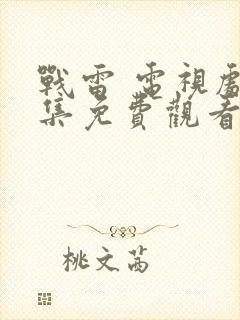 戰雷 電視劇
集免費觀看
桃文茜